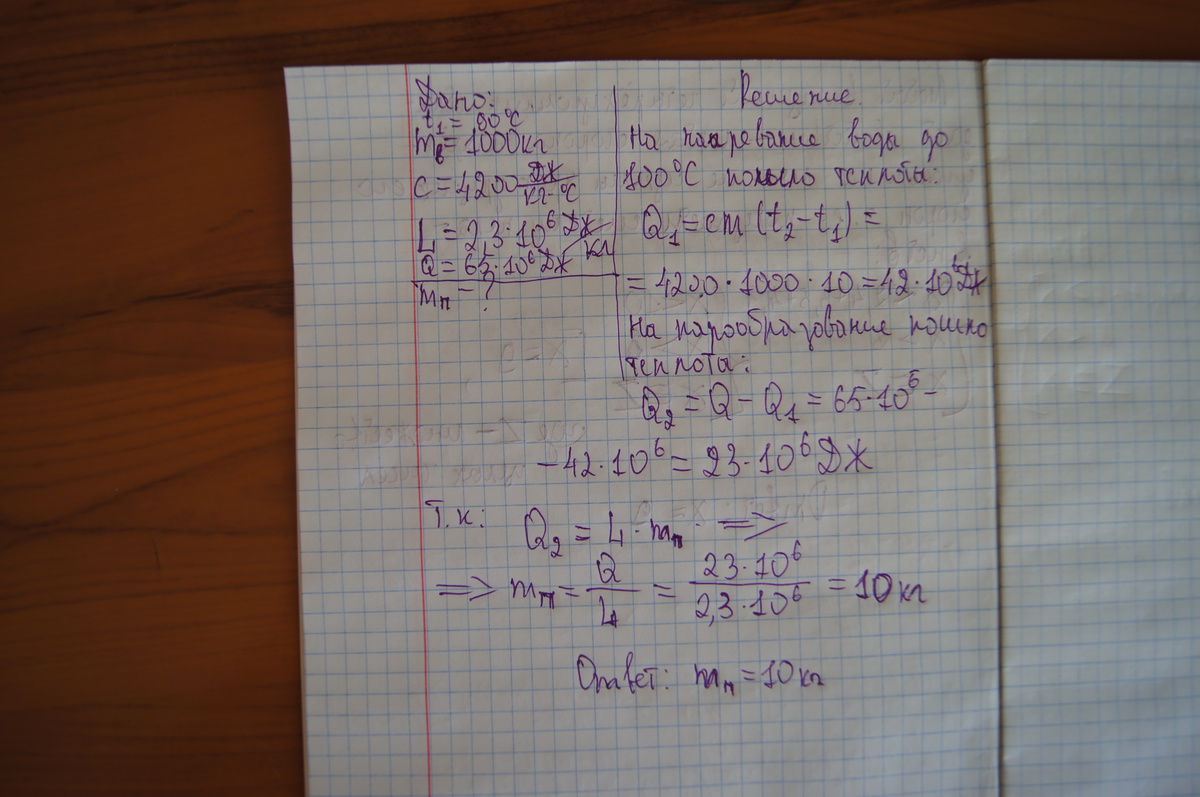 Дано:
t₁ = 90°C
mв = 1000 кг
c = 4200 Дж/кг·°C
L = 2,3·10⁶ Дж/кг
Q = 65·10⁶ Дж
mп – ?
Решение
На нагревание воды до
100°C пошло теплоты:
Q₁ = cm (t₂ – t₁) =
= 4200 · 1000 · 10 = 42 · 10⁶ Дж
На парообразование пошло
теплота:
Q₂ = Q – Q₁ = 65·10⁶ –
– 42·10⁶ = 23·10⁶ Дж
Т.к: Q₂ = L · mп ⟹
⟹ mп = Q/L = 23·10⁶/2,3·10⁶ = 10 кг
Ответ: mп = 10 кг